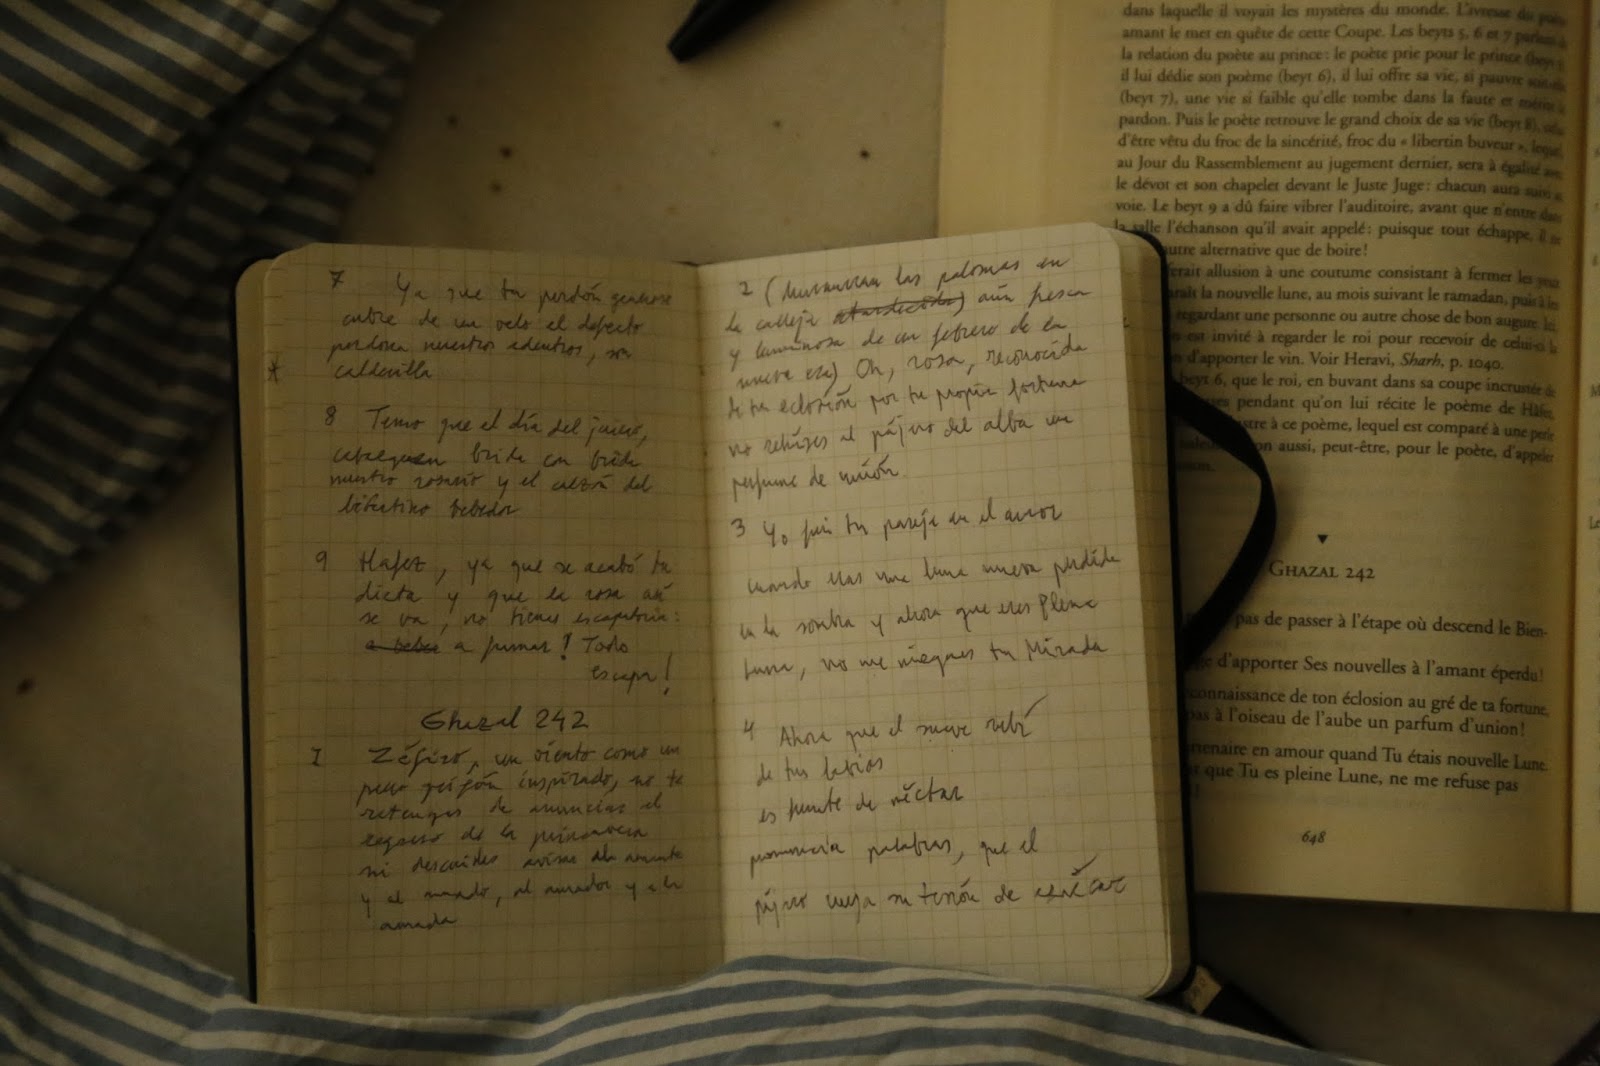 7 Ya que tu perdón generoso
cubre de un velo el defecto
perdona nuestros
calderilla
8 Temo que el día del juicio,
cabalguen brida con brida
nuestro rosario y el calzón del
libertino bebedor
9 Hafez, ya que se acabó tu
dicta y que la rosa así
se va, no tienes escapatoria:
a beber a fumar! Todo
escapa!
Ghazal 242
1 Zéfiro, un viento como un
grifón inspirado, no te
retengas de anunciar el
regreso de la primavera
ni descuides avisar al amante
y al amado, al amador y a la
amada
2 (Murmuran las palomas en
la calleja atardecida) aún fresca
y luminosa de un febrero de la
nueva era) Oh, rosa, reconocida
de tu eclosión por tu propia fortuna
no rehúses al pájaro del alba un
perfume de unión
3 Yo fui tu pareja en el amor
cuando eras una luna nueva perdida
en la sombra y ahora que eres plena
luna, no me niegues tu Mirada
4 Ahora que el suave rubí
de tus labios
es fuente de néctar
pronuncia palabras, que el
pájaro de
dans laquelle il voyait les mystères du monde. L'ivresse du
amant le met en quête de cette Coupe. Les beyts 5, 6 et 7 parlent
la relation du poète au prince : le poète prie pour le prince (beyt
il lui dédie son poème (beyt 6), il lui offre sa vie, si pauvre
(beyt 7), une vie si faible qu'elle tombe dans la faute et mérite
pardon. Puis le poète retrouve le grand choix de sa vie (beyt 8),
d'être vêtu du froc de la sincérité, froc du « libertin buveur », lequel,
au Jour du Rassemblement au jugement dernier, sera à égalité avec
le dévot et son chapelet devant le Juste Juge : chacun aura suivi
voie. Le beyt 9 a dû faire vibrer l'auditoire, avant que n'entre dans
la salle l'échanson qu'il avait appelé : puisque tout échappe, il
autre alternative que de boire !
ferait allusion à une coutume consistant à fermer les yeux
paraît la nouvelle lune, au mois suivant le ramadan, puis à les
regardant une personne ou autre chose de bon augure.
est invité à regarder le roi pour recevoir de celui-ci
d'apporter le vin. Voir Heravi, Sharh, p. 1040.
beyt 6, que le roi, en buvant dans sa coupe incrustée de
pendant qu'on lui récite le poème de Hâfez,
à ce poème, lequel est comparé à une perle
on aussi, peut-être, pour le poète, d'appeler
▼
GHAZAL 242
pas de passer à l'étape où descend le Bien-
d'apporter Ses nouvelles à l'amant éperdu !
connaissance de ton éclosion au gré de ta fortune,
pas à l'oiseau de l'aube un parfum d'union !
partenaire en amour quand Tu étais nouvelle Lune.
que Tu es pleine Lune, ne me refuse pas
!
648